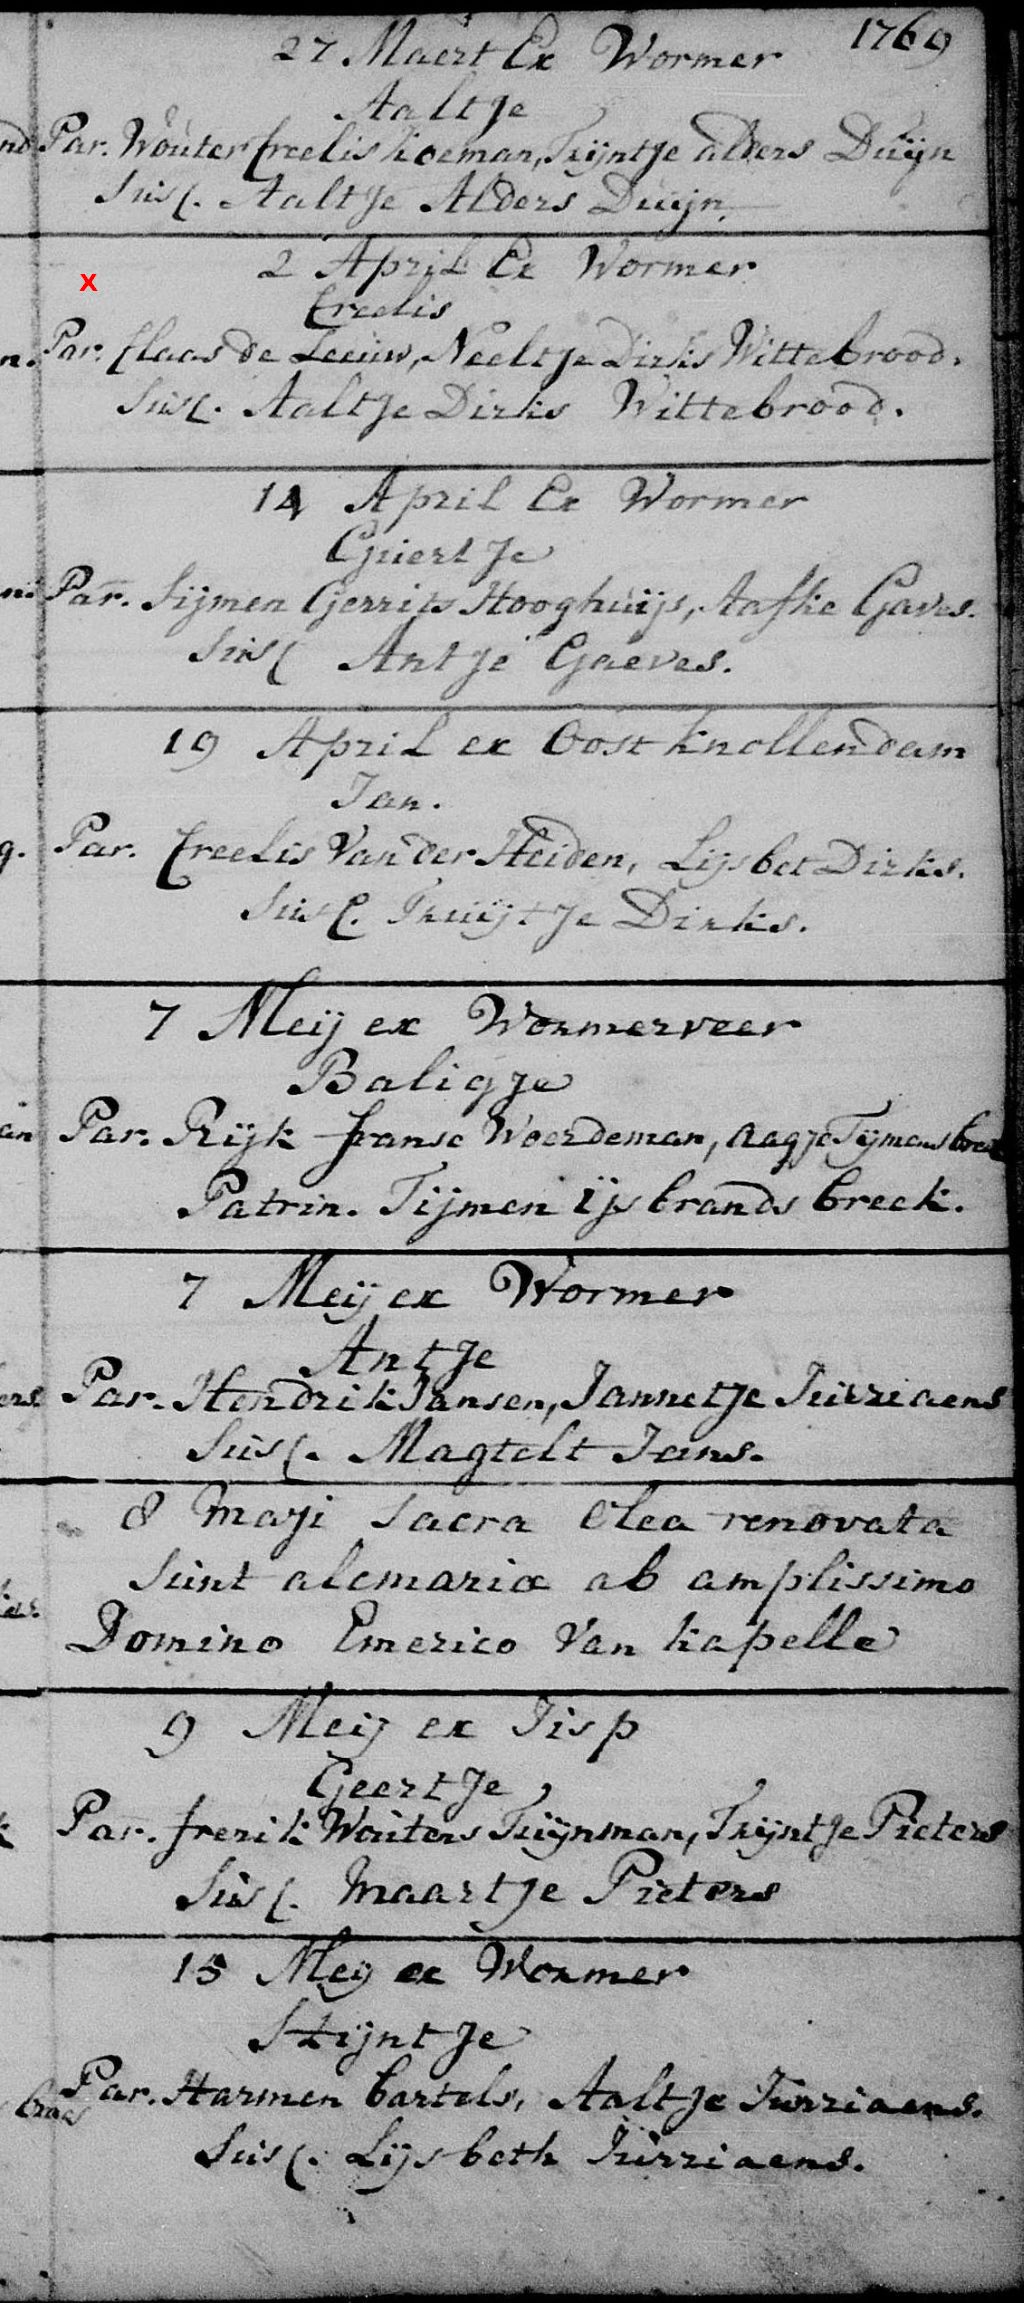 1769
27 Maert Ex Wormer
Aaltje
Par. Wouter Creelis Koeman, Trijntje Alders Duijn
Susc. Aaltje Alders Duijn.
x
2 April Ex Wormer
Creelis
Par. Claas de Leeuw, Neeltje Dirks Wittebrood.
Susc. Aaltje Dirks Wittebrood.
14 April Ex Wormer
Griertje
Par. Sijmen Gerrits Hooghuijs, Aafke Gaves.
Susc Antje Gaeves.
19 April ex Oostknollendam
Jan.
Par. Creelis Van der Heiden, Lijsbet Dirks.
Susc. Truijtje Dirks.
7 Meij ex Wormerveer
Baligje
Par. Rijk franse Woerdeman, Aagje Tijmens breek
Patrin. Tijmen ijsbrands breek.
7 Meij ex Wormer
Antje
Par. Hendrik Jansen, Jannetje Jurriaens
Susc. Magtelt Jans.
8 maji sacra olea renovata
sunt alcmariæ ab amplissimo
Domino Emerico Van kapelle
9 Meij ex Jisp
Geertje
Par. frerik Wouters Tuijnman, Trijntje Pieters
Susc. Maartje Pieters
15 Meij ex Wormer
Stijntje
Par. Harmen bartels, Aaltje Jurriaens.
Susc. Lijsbeth Jurriaens.